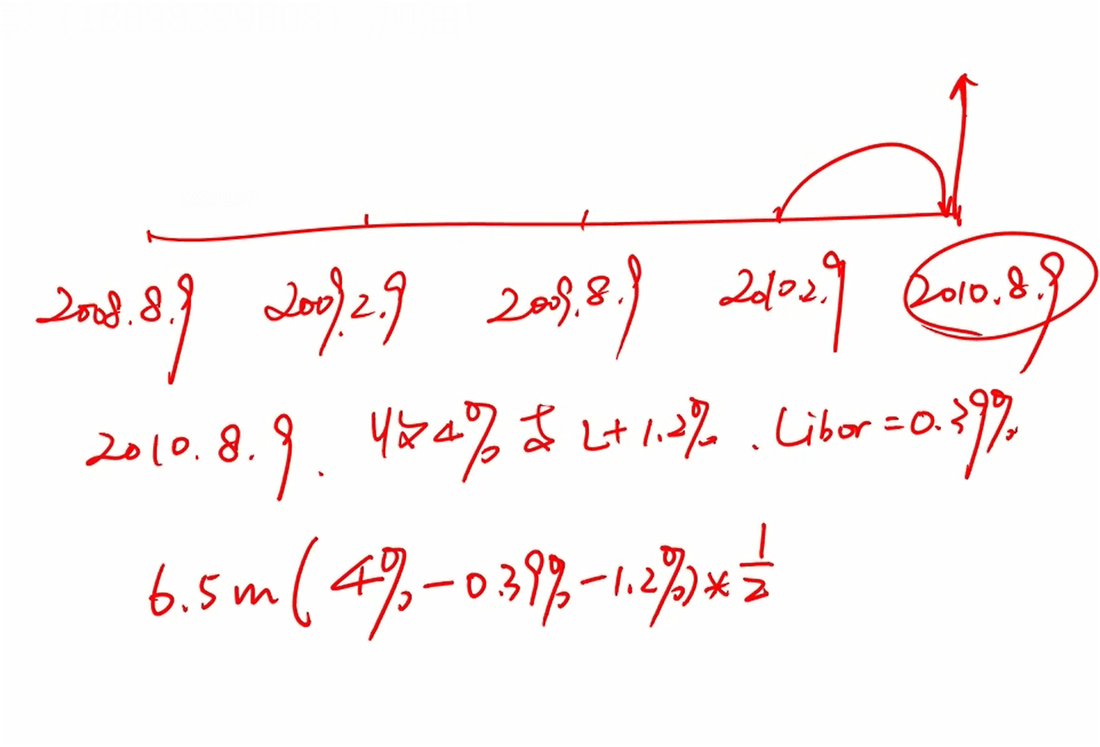 2008.8.9 2009.2.9 2009.8.9 2010.2.9 2010.8.9
2010.8.9. 收4% 支L+1.2%. Libor=0.39%
6.5m(4%-0.39%-1.2%)*1/2